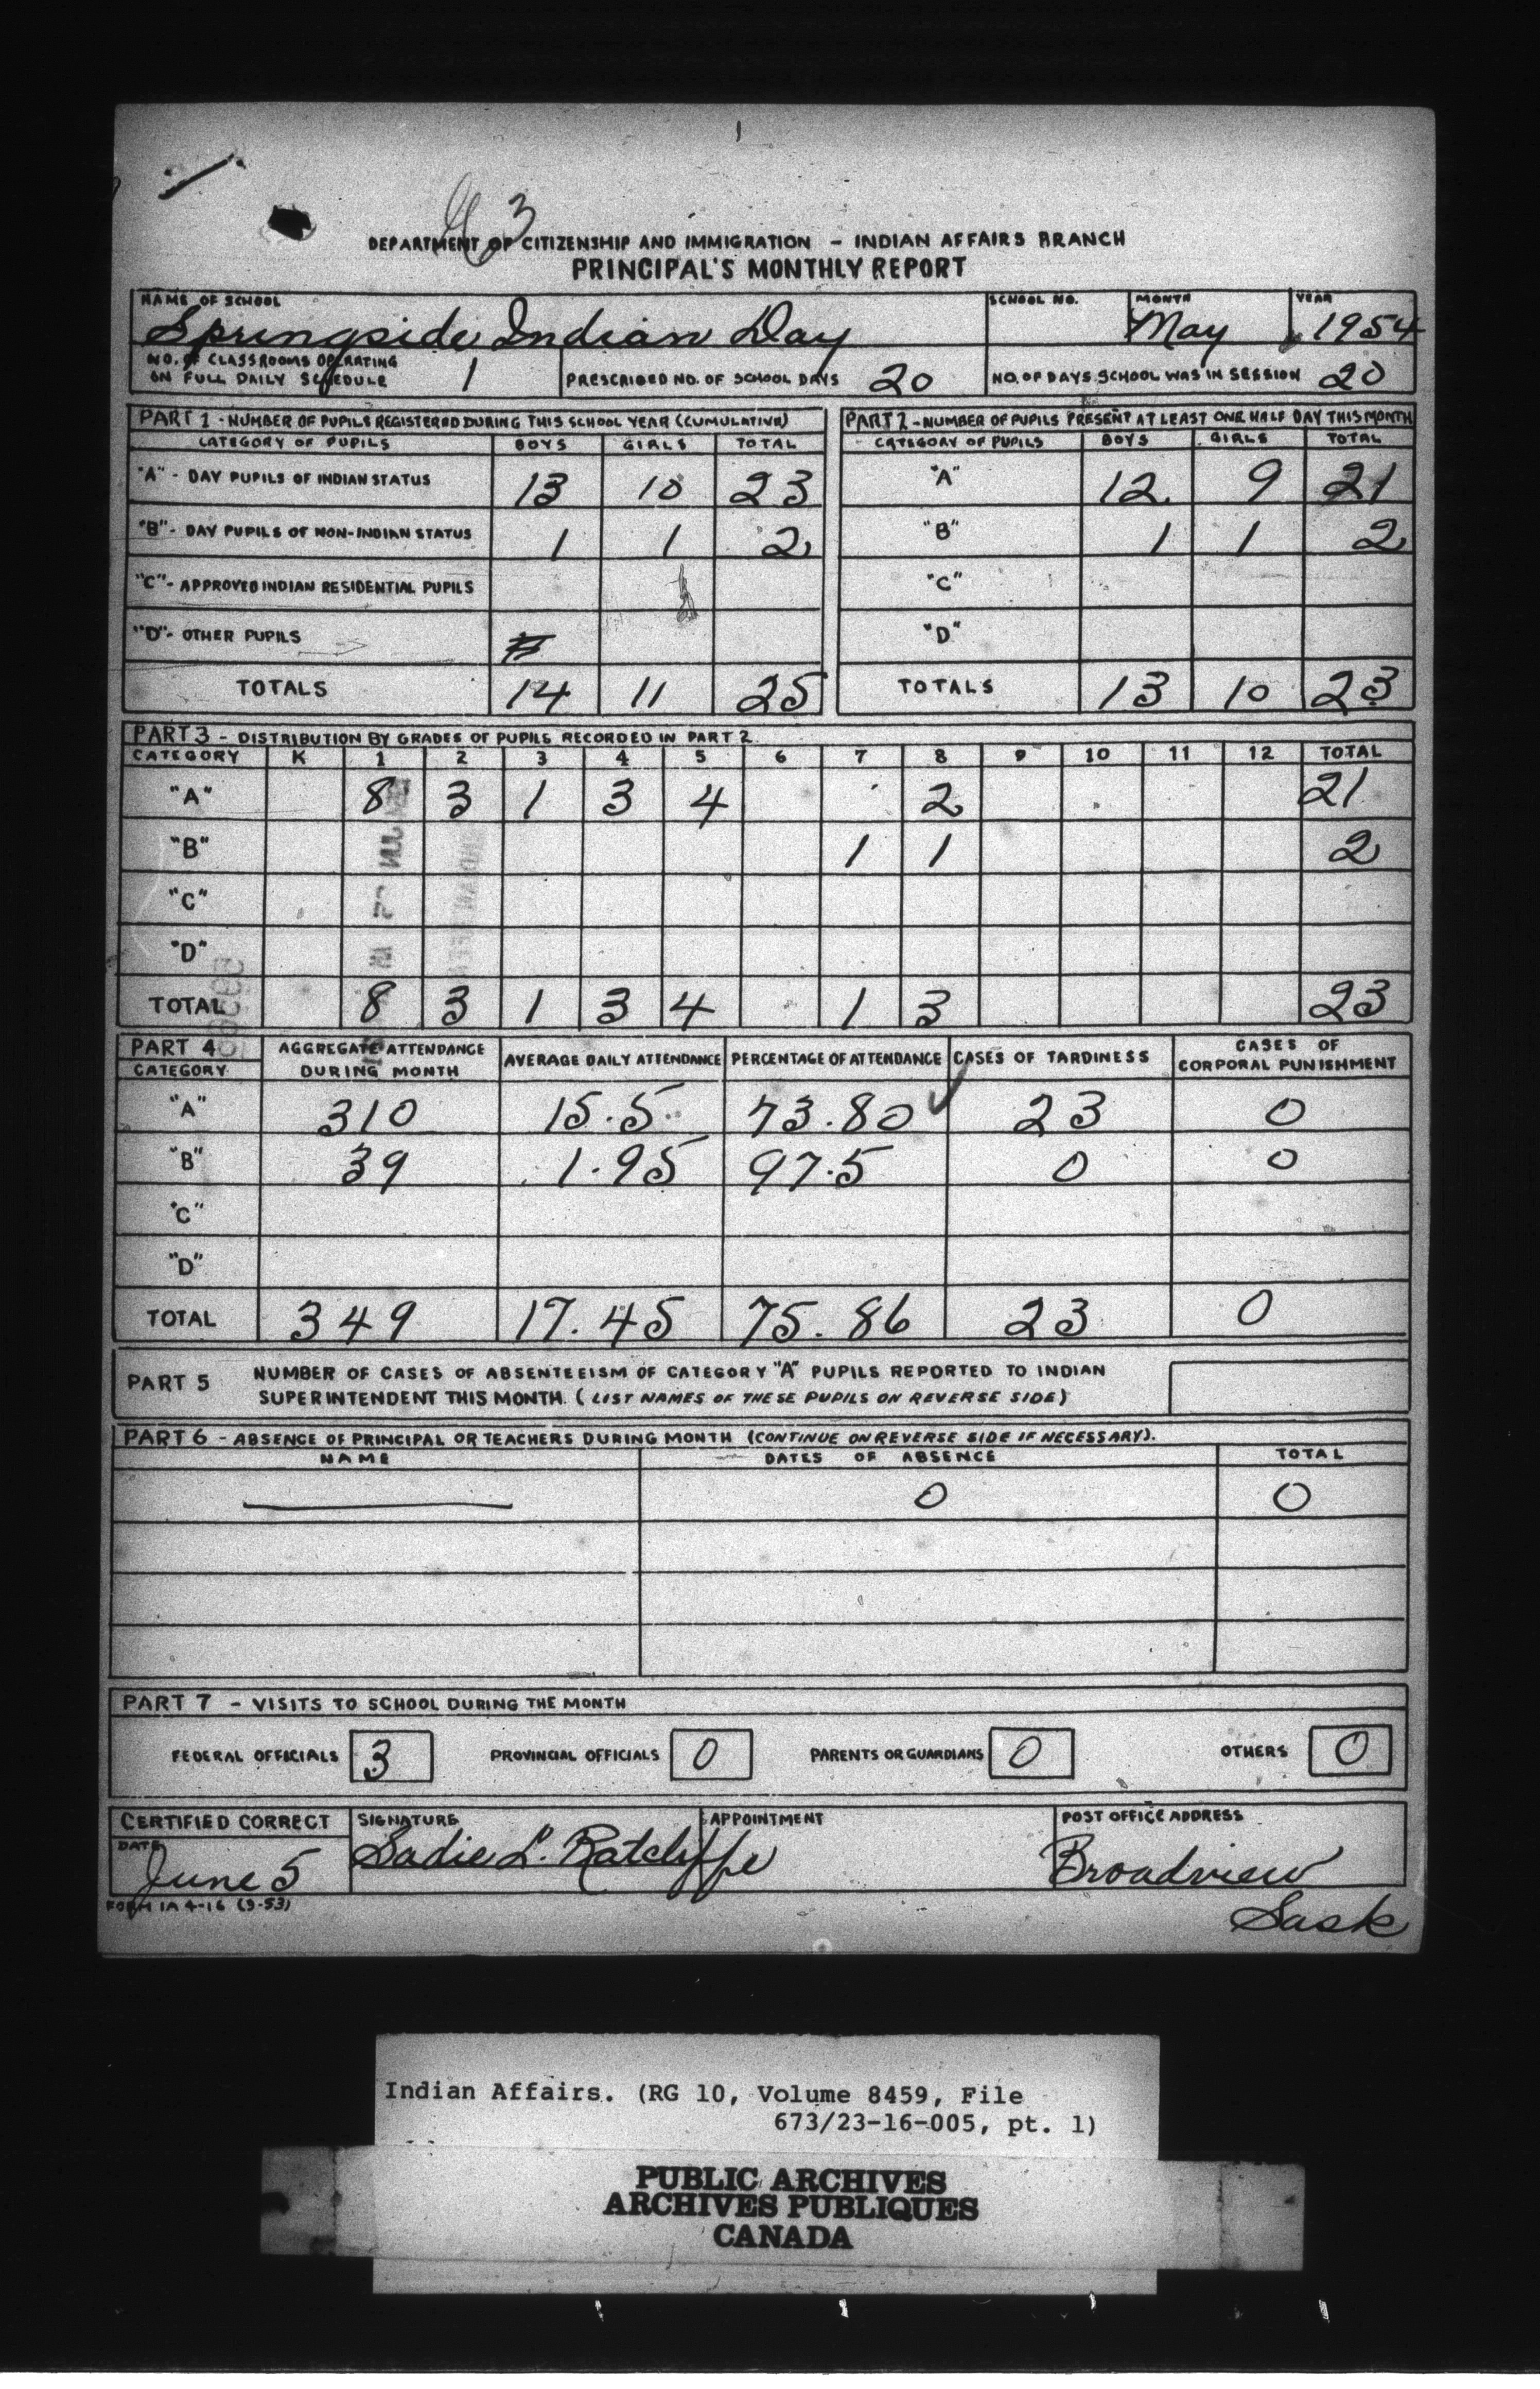 93
DEPARTMENT OF CITIZENSHIP AND IMMIGRATION - INDIAN AFFAIRS BRANCH
PRINCIPAL'S MONTHLY REPORT
NAME OF SCHOOL SCHOOL NO. MONTH YEAR
Springside Indian Day May 1954
NO. OF CLASSROOMS OPERATING
ON FULL DAILY SCHEDULE 1 PRESCRIBED NO. OF SCHOOL DAYS 20 NO. OF DAYS SCHOOL WAS IN SESSION 20
PART 1 - NUMBER OF PUPILS REGISTERED DURING THIS SCHOOL YEAR (CUMULATIVE)
CATEGORY OF PUPILS BOYS GIRLS TOTAL
"A" - DAY PUPILS OF INDIAN STATUS 13 10 23
"B" - DAY PUPILS OF NON-INDIAN STATUS 1 1 2
"C" - APPROVED INDIAN RESIDENTIAL PUPILS
"D" - OTHER PUPILS
TOTALS 14 11 25
PART 2 - NUMBER OF PUPILS PRESENT AT LEAST ONE HALF DAY THIS MONTH
CATEGORY OF PUPILS BOYS GIRLS TOTAL
"A" 12 9 21
"B" 1 1 2
"C"
"D"
TOTALS 13 10 23
PART 3 - DISTRIBUTION BY GRADES OF PUPILS RECORDED IN PART 2
CATEGORY K 1 2 3 4 5 6 7 8 9 10 11 12 TOTAL
"A" 8 3 1 3 4 2 21
"B" 1 1 2
"C"
"D"
TOTAL 8 3 1 3 4 1 3 23
PART 4 AGGREGATE ATTENDANCE DURING MONTH AVERAGE DAILY ATTENDANCE PERCENTAGE OF ATTENDANCE CASES OF TARDINESS CASES OF CORPORAL PUNISHMENT
CATEGORY
"A" 310 15.5 73.80 23 0
"B" 39 1.95 97.5 0 0
"C"
"D"
TOTAL 349 17.45 75.86 23 0
PART 5 NUMBER OF CASES OF ABSENTEEISM OF CATEGORY "A" PUPILS REPORTED TO INDIAN
SUPERINTENDENT THIS MONTH. (LIST NAMES OF THESE PUPILS ON REVERSE SIDE)
PART 6 - ABSENCE OF PRINCIPAL OR TEACHERS DURING MONTH (CONTINUE ON REVERSE SIDE IF NECESSARY).
NAME DATES OF ABSENCE TOTAL
0 0
PART 7 - VISITS TO SCHOOL DURING THE MONTH
FEDERAL OFFICIALS 3 PROVINCIAL OFFICIALS 0 PARENTS OR GUARDIANS 0 OTHERS 0
CERTIFIED CORRECT SIGNATURE APPOINTMENT POST OFFICE ADDRESS
DATE
June 5 Sadie L. Ratcliffe Broadview
FORM IA 4-16 (9-53) Sask
Indian Affairs. (RG 10, Volume 8459, File
673/23-16-005, pt. 1)
PUBLIC ARCHIVES
ARCHIVES PUBLIQUES
CANADA